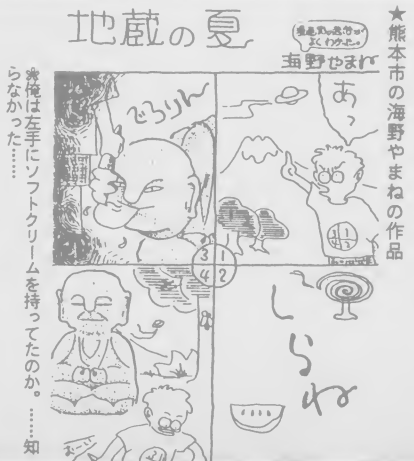 ★熊本市の海野やまねの作品
地蔵の夏
海野やまね
あっ
しらね
でろりん
おーい
3 1
4 2
※俺は左手にソフトクリームを持ってたのか。……知
らなかった……